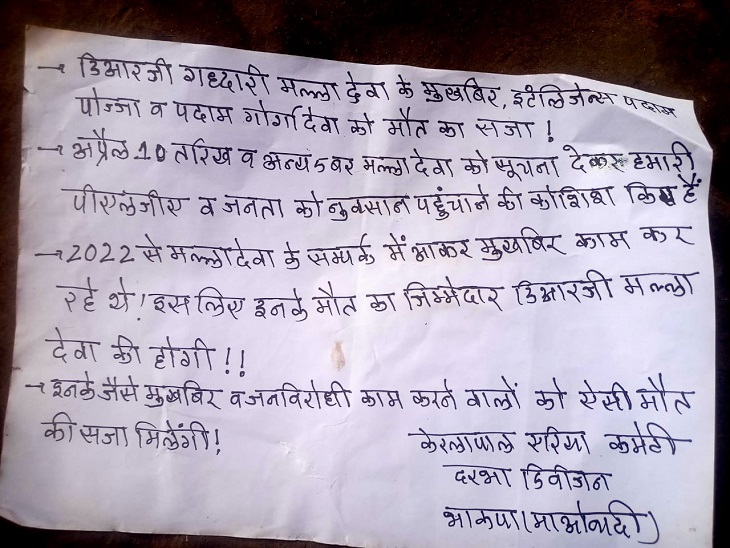 → डिआरजी गध्दारी मल्ला देवा के मुखबिर, इंटेलिजेन्स पदाम
पोज्जा व पदाम गोर्गा देवा को मौत का सजा!
→ अप्रैल 10 तरिख व अन्य 5 बर मल्ला देवा को सूचना देकर हमारी
पीएलजीए व जनता को नुक्सान पहुंचाने की कोशिश किए हैं
→ 2022 से मल्ला देवा के सम्पर्क में आकर मुखबिर काम कर
रहे थे! इस लिए इनके मौत का जिम्मेदार डिआरजी मल्ला
देवा की होगी!!
→ इनके जैसे मुखबिर व जनविरोधी काम करने वालों को ऐसी मौत
की सजा मिलेंगी!
केरलापाल एरिया कमेटी
दरभा डिवीजन
भाकपा (माओवादी)